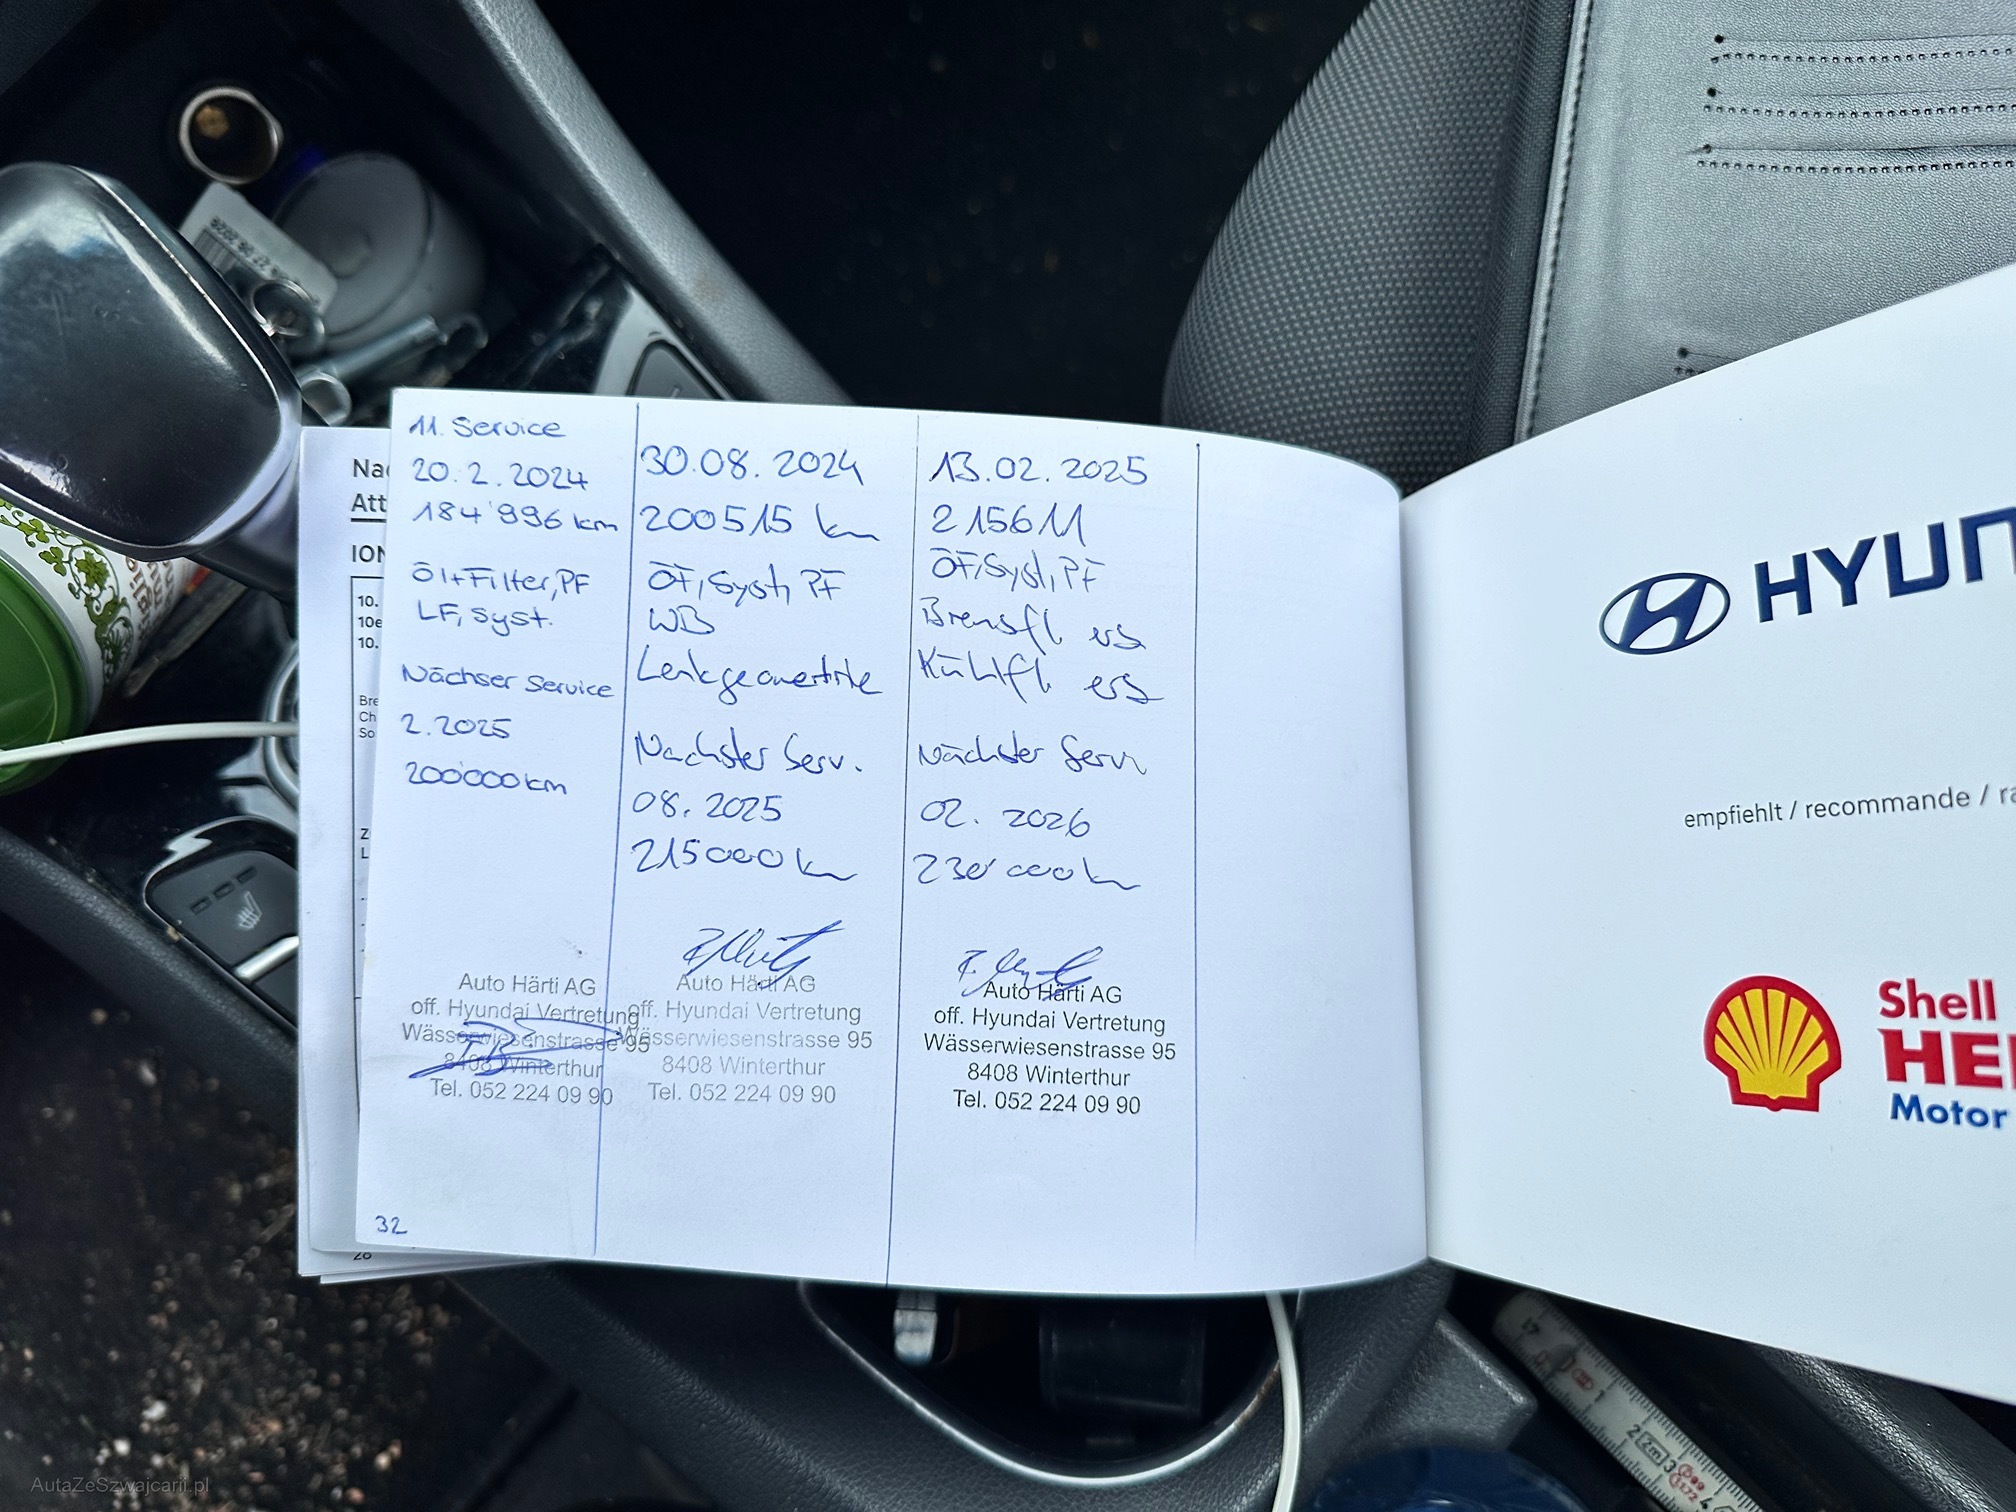 11. Service
20.2.2024
184'996 km
Öl+Filter, PF
LF, syst.
Nächser Service
2.2025
200'000 km
Auto Härti AG
off. Hyundai Vertretung
Wässerwiesenstrasse 95
8408 Winterthur
Tel. 052 224 09 90
32
30.08.2024
200515 km
ÖF, Syst, PF
WB
Lenkgeometrie
Nächster Serv.
08.2025
215000 km
Auto Härti AG
off. Hyundai Vertretung
Wässerwiesenstrasse 95
8408 Winterthur
Tel. 052 224 09 90
13.02.2025
215611
ÖF, Syst, PF
Bremsfl ers
Kühlfl ers
Nächster Serv
02.2026
230'000 km
Auto Härti AG
off. Hyundai Vertretung
Wässerwiesenstrasse 95
8408 Winterthur
Tel. 052 224 09 90
Na
Att
ION
10.
10e
10.
Bre
Ch
So
Z
L
HYUN
empfiehlt / recommande / ra
Shell
HE
Motor
AutaZeSzwajcarii.pl